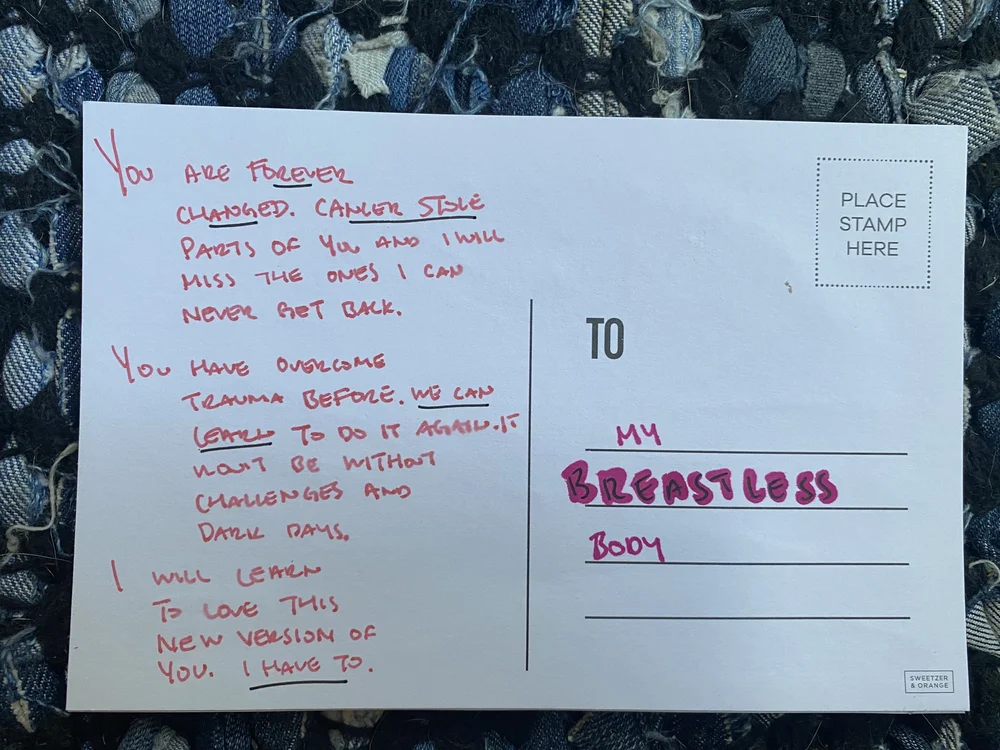 YOU ARE FOREVER
CHANGED. CANCER STOLE
PARTS OF YOU AND I WILL
MISS THE ONES I CAN
NEVER GET BACK.
YOU HAVE OVERCOME
TRAUMA BEFORE. WE CAN
LEARN TO DO IT AGAIN. IT
WON'T BE WITHOUT
CHALLENGES AND
DARK DAYS.
I WILL LEARN
TO LOVE THIS
NEW VERSION OF
YOU. I HAVE TO.
PLACE
STAMP
HERE
TO
MY
BREASTLESS
BODY
SWEETZER
& ORANGE